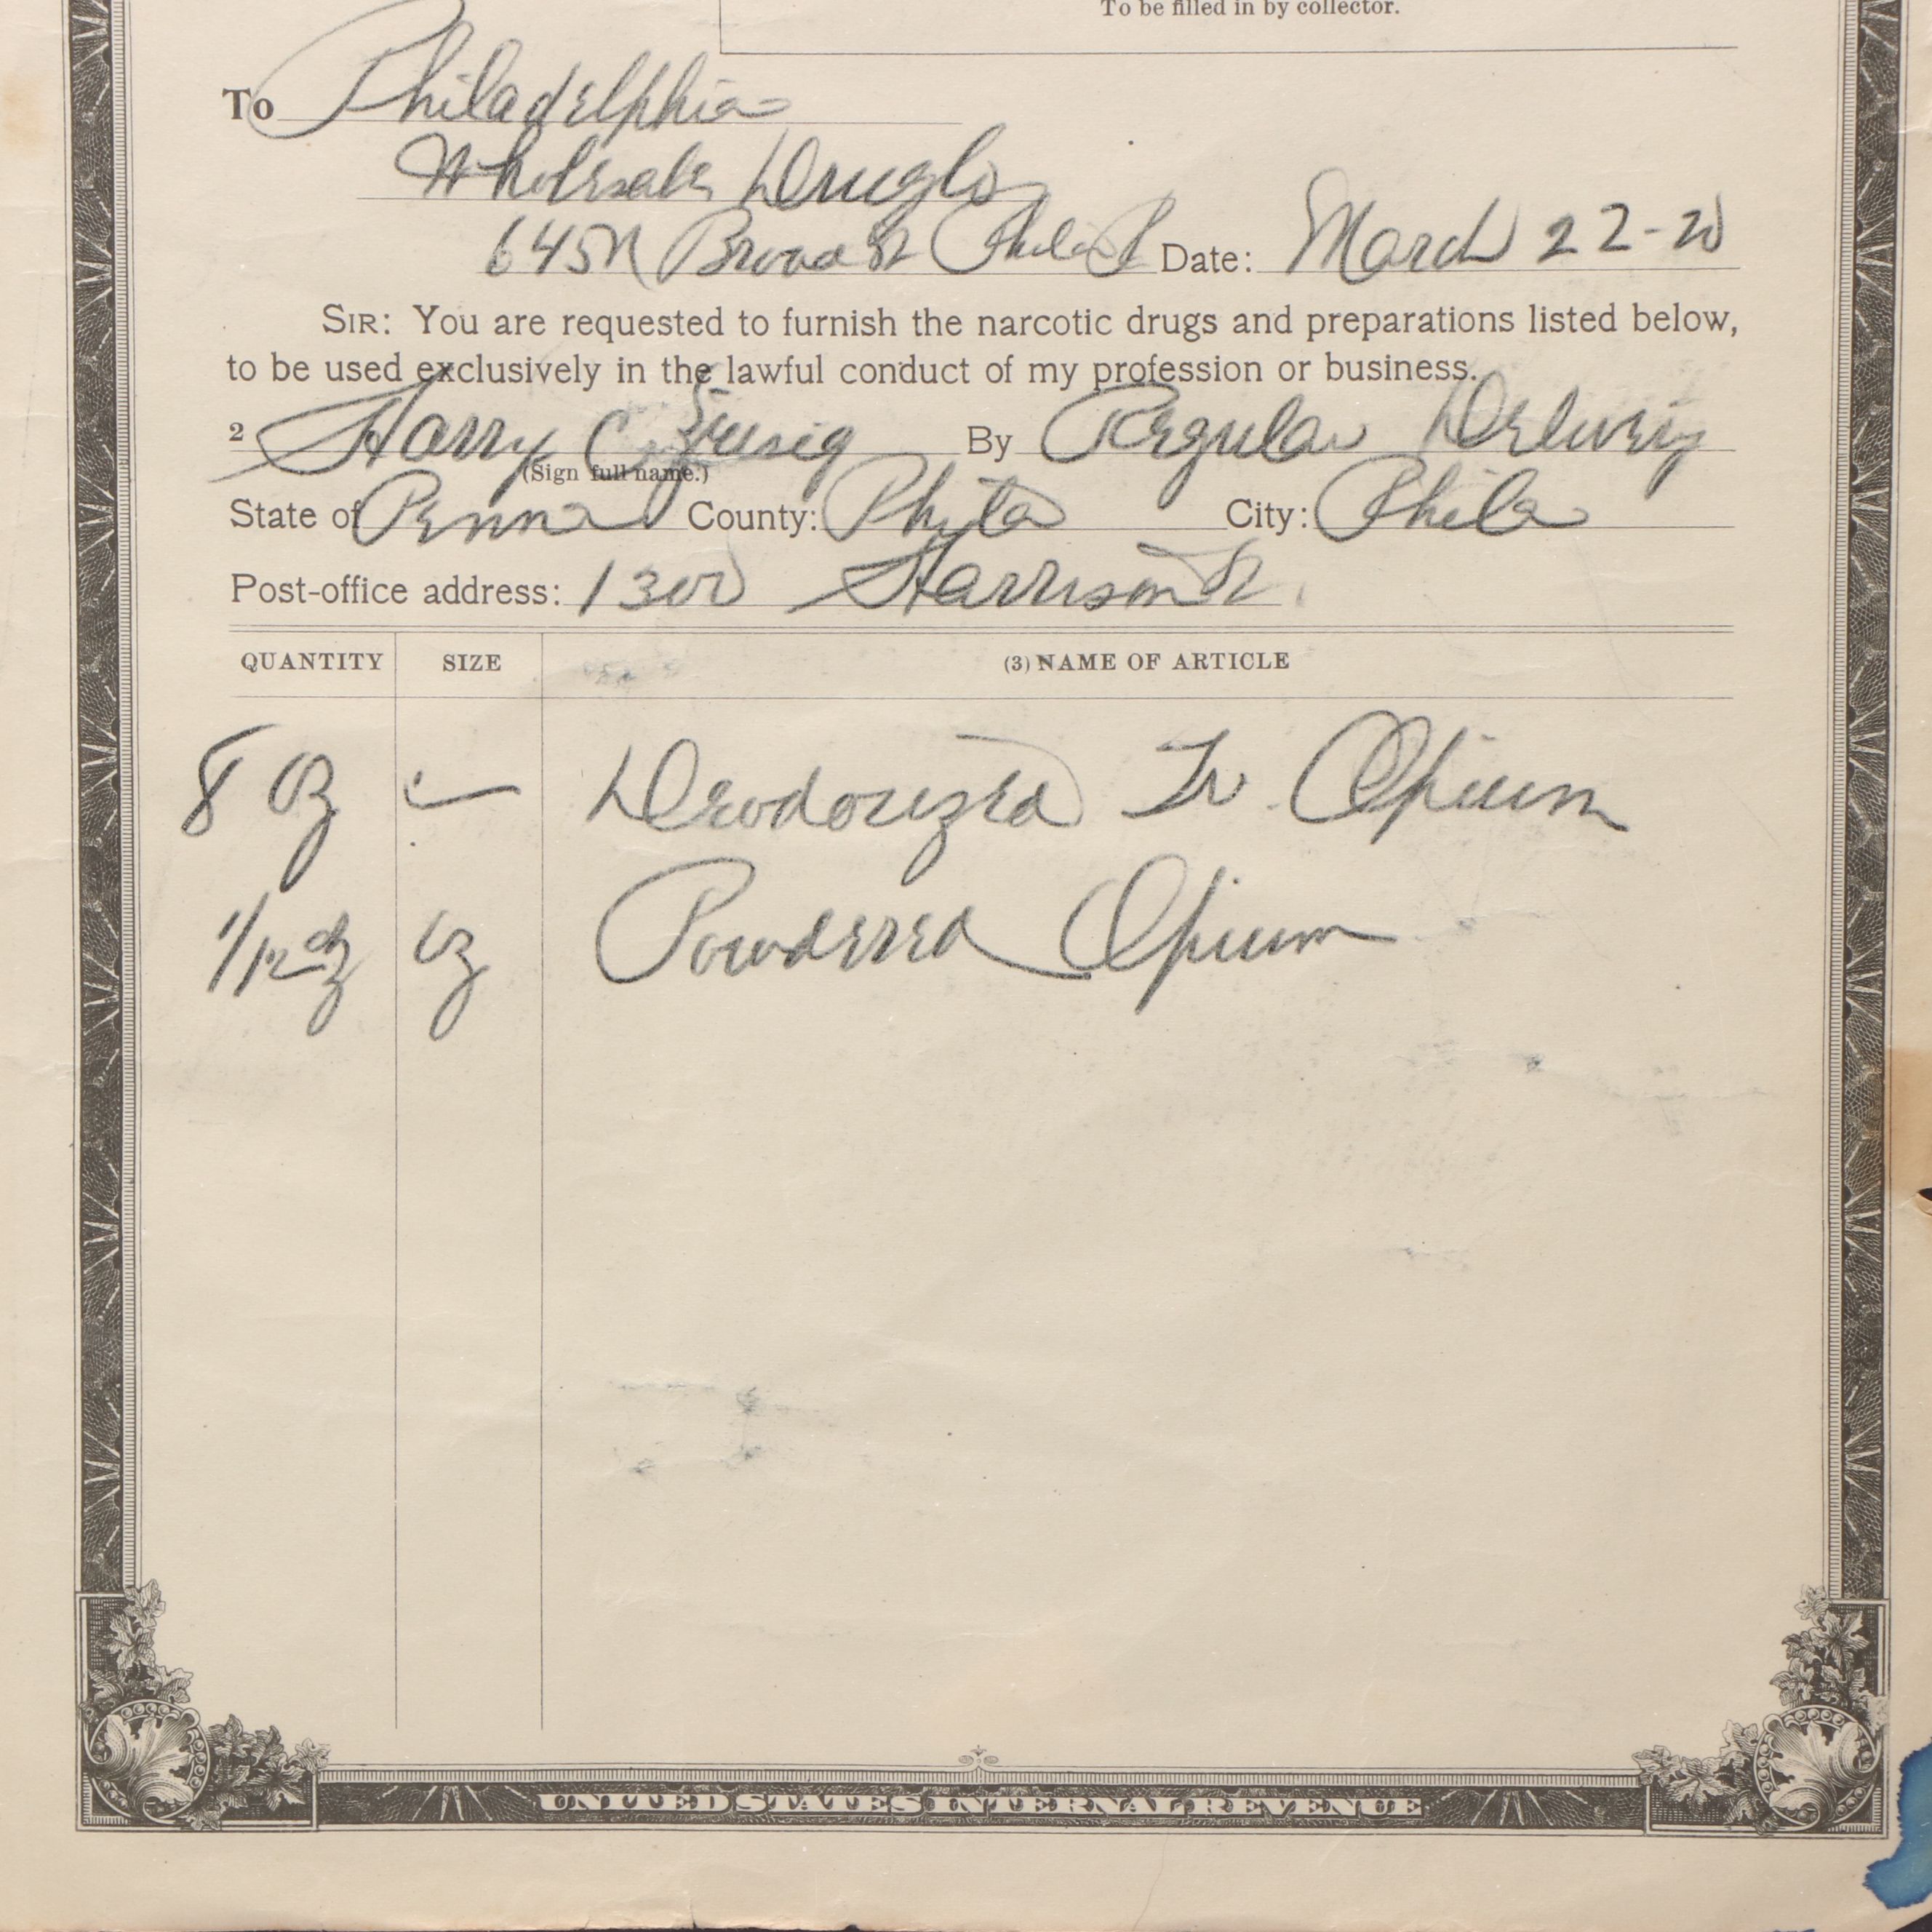 To be filled in by collector.
To Philadelphia
Wholesale Drug Co
645 N Broad St Phila P Date: March 22-20
SIR: You are requested to furnish the narcotic drugs and preparations listed below,
to be used exclusively in the lawful conduct of my profession or business.
2 Harry C By Regular Delivery
(Sign full name.)
State of Penna County: Phila City: Phila
Post-office address: 1300 Harrison St.
QUANTITY SIZE (3) NAME OF ARTICLE
8 Oz — Deodorized Tr. Opium
1/12 dz Oz Powdered Opium
UNITED STATES INTERNAL REVENUE